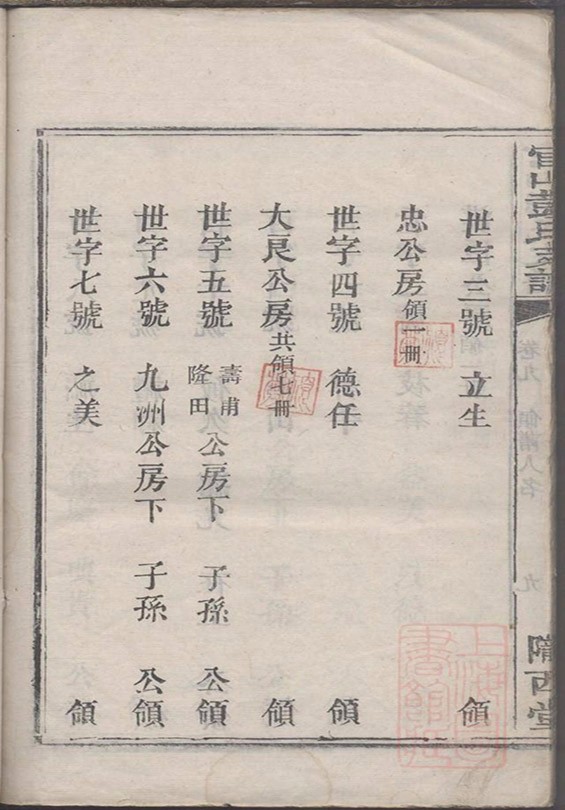 官山彭氏支譜
卷九
領譜人名
九
隴西堂
世字三號 立生 領
忠公房領一冊
世字四號 德任 領
大艮公房共領七冊 領
世字五號 壽甫 隆田 公房下 子孫 公領
世字六號 九洲公房下 子孫 公領
世字七號 之美 領
上海圖書館藏